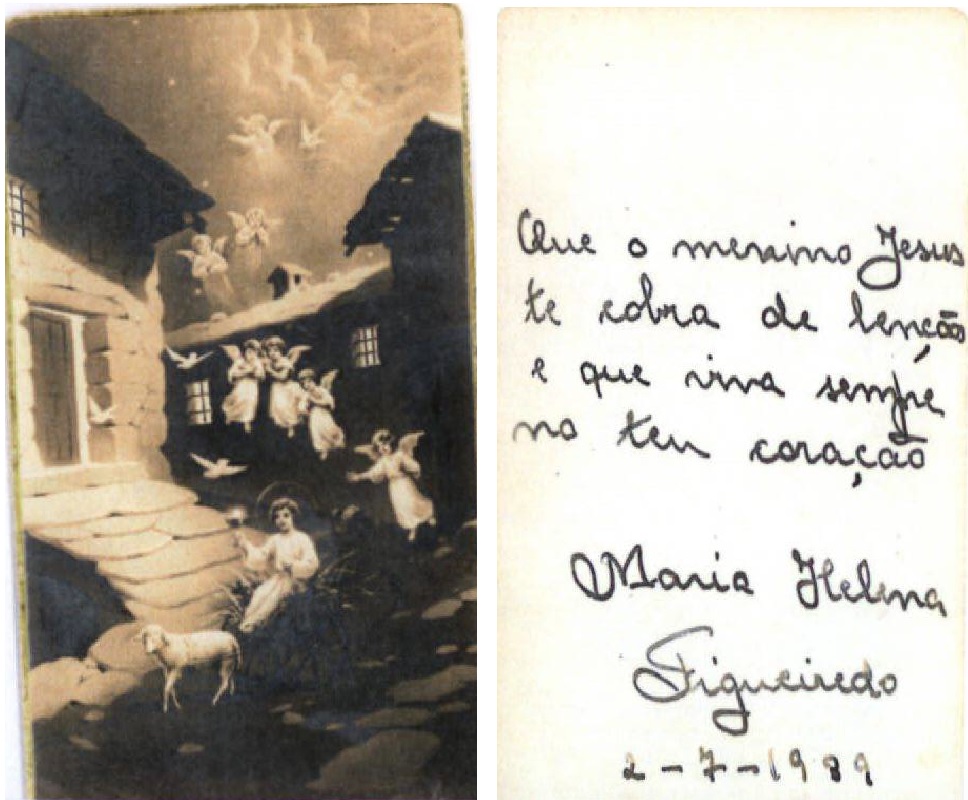 Que o menino Jesus
te cobra de benção
e que viva sempre
no teu coração
Maria Helena
Figueiredo
2-7-1989